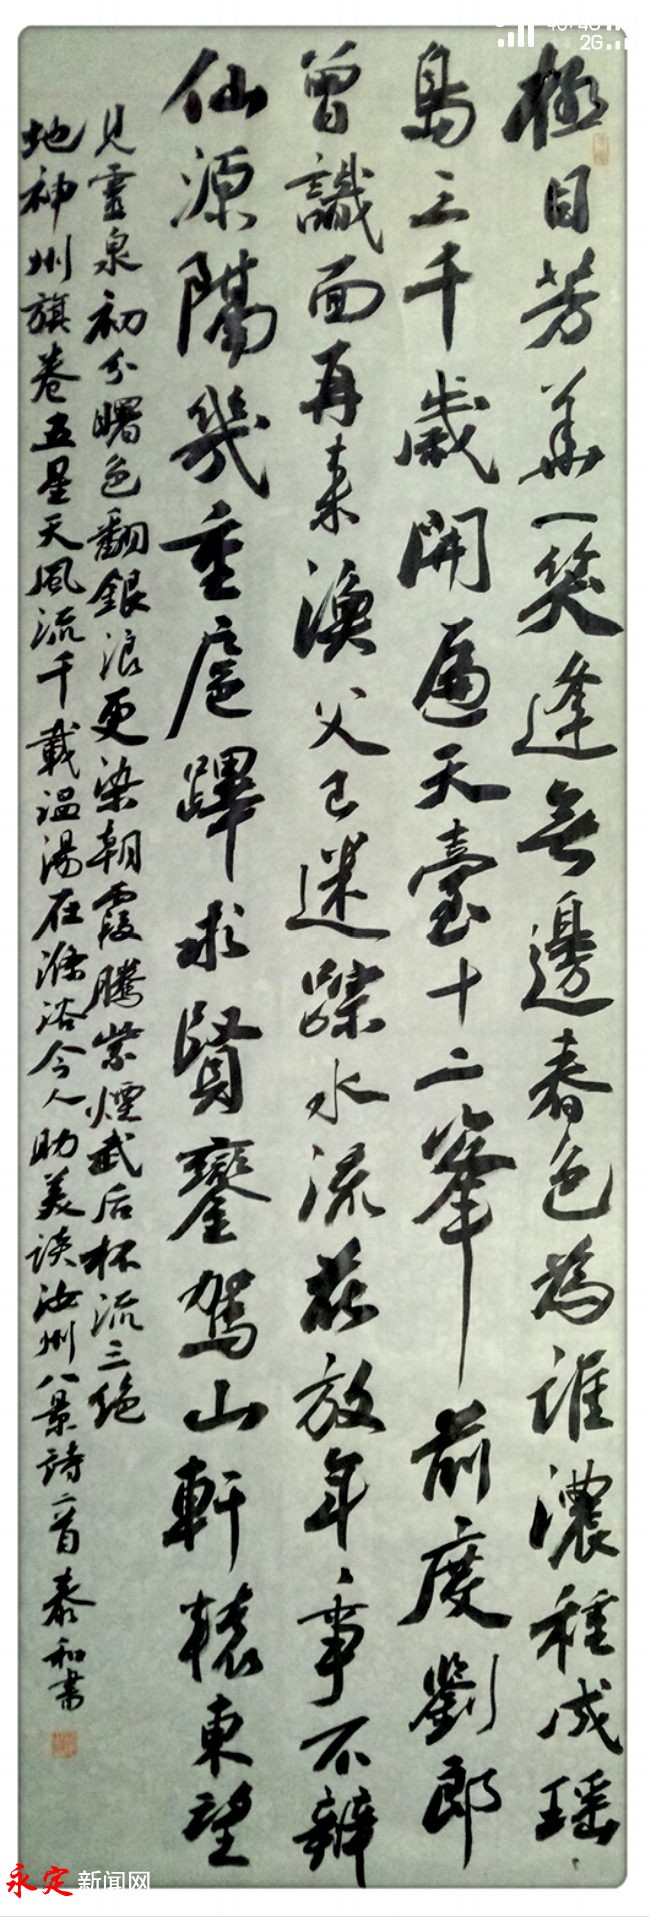 極目芳華一笑逢無邊春色為誰濃種成瑶
島三千歲開遍天臺十二峯前度劉郎
曾識面再来漁父已迷蹤水流花放年年事不辨
仙源隔幾重扈蹕求賢鑾駕山軒轅東望
見靈泉初分曙色翻銀浪更染朝霞騰紫煙武后杯流三絶
地神州旗卷五星天風流千載温湯在滌浴今人助美談汝州八景詩二首泰和書
2G
永定新闻网